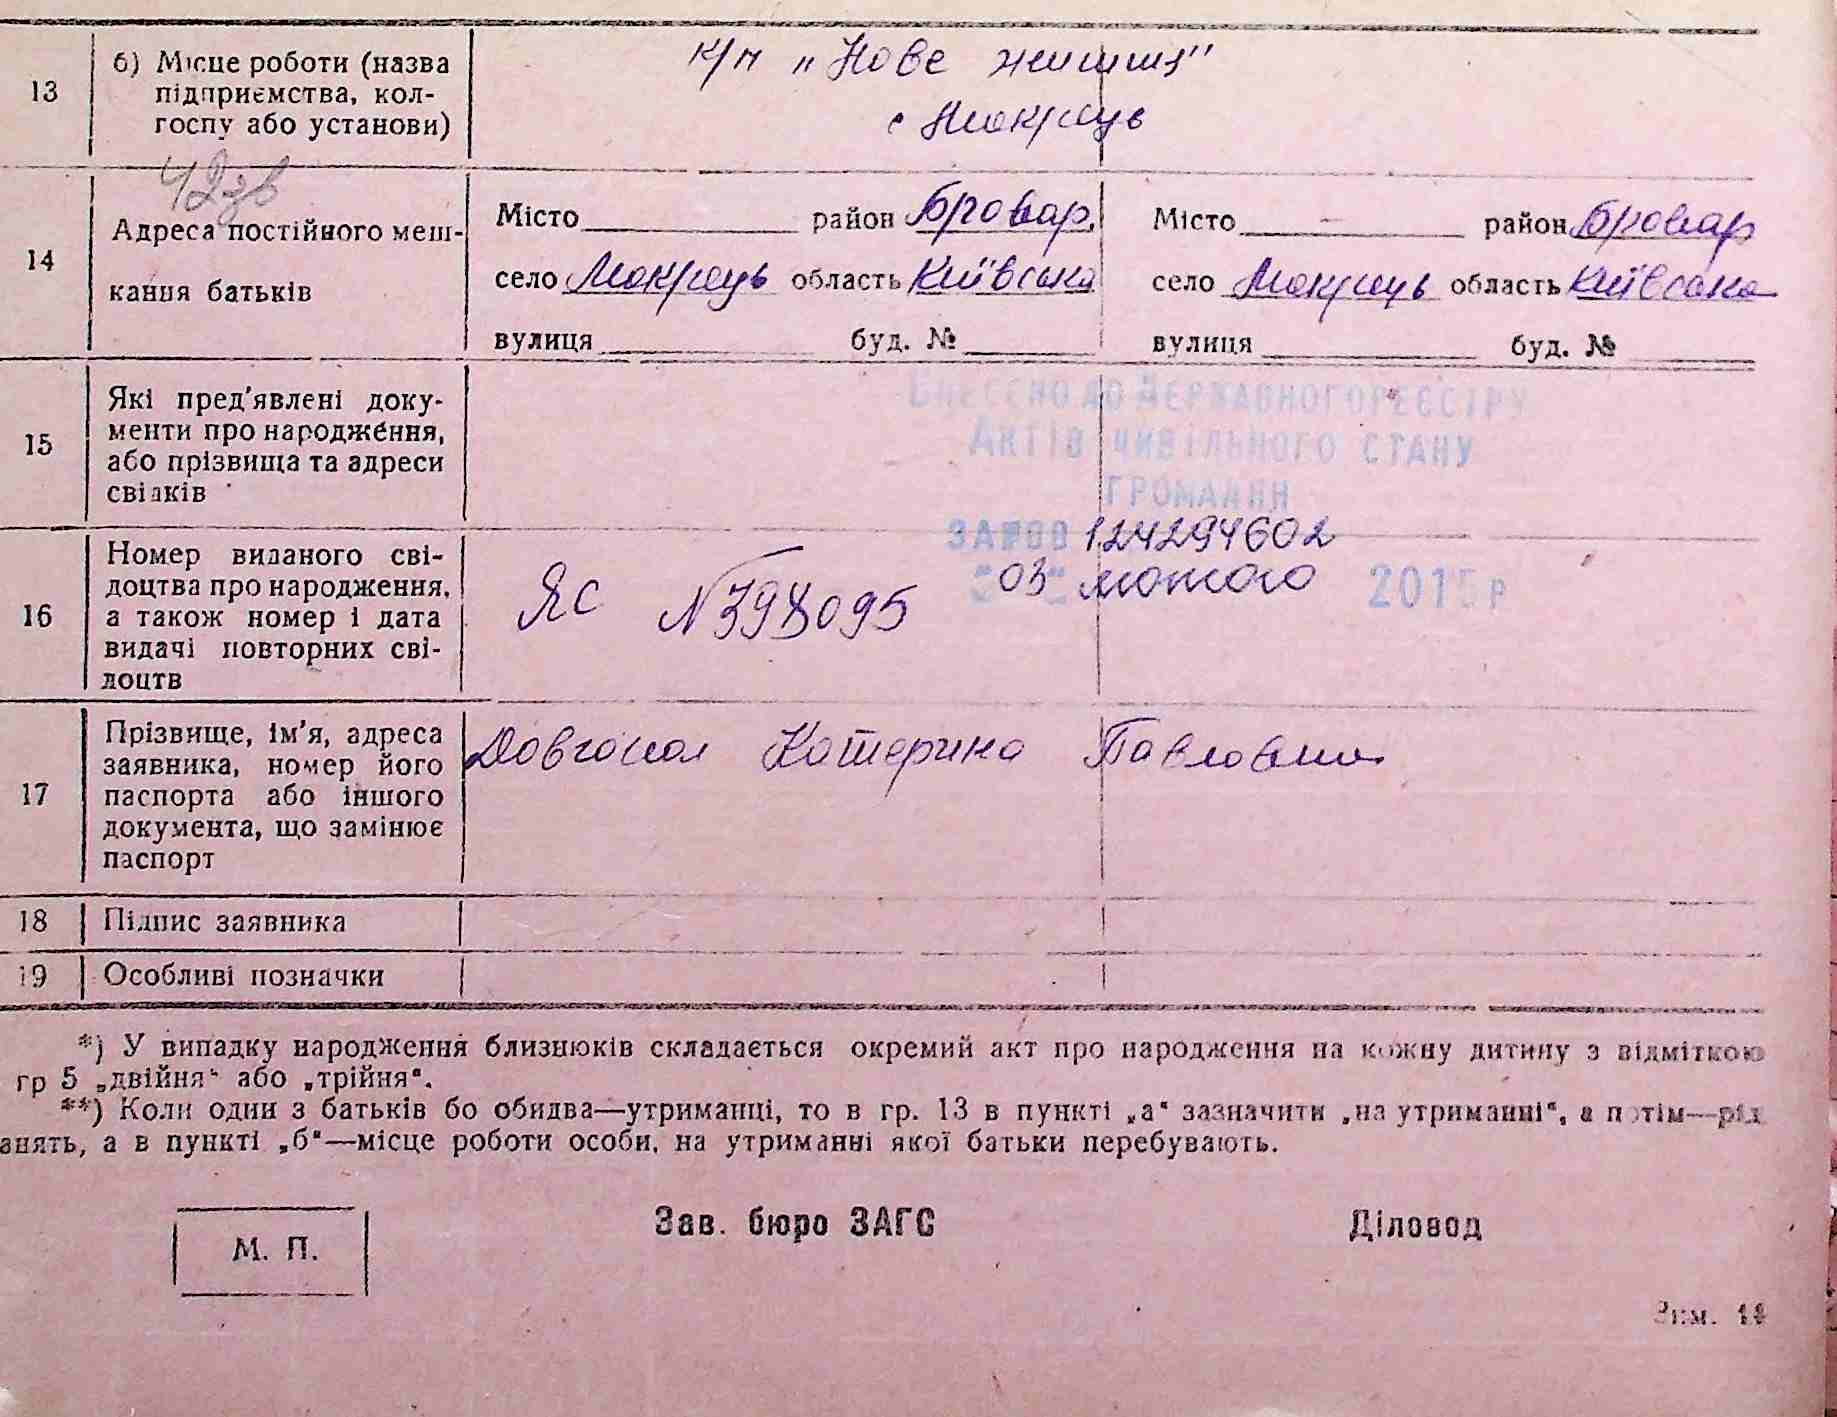 13
б) Місце роботи (назва
підприємства, кол-
госпу або установи)
к/г „Нове життя"
с Мокрець
14
Адреса постійного меш-
кання батьків
Місто район Бровар.
село Мокрець область Київська
вулиця буд. №
Місто — район Бровар
село Мокрець область Київська
вулиця буд. №
15
Які пред'явлені доку-
менти про народження,
або прізвища та адреси
свідків
Внесено до Державного реєстру
Актів цивільного стану
громадян
16
Номер виданого сві-
доцтва про народження,
а також номер і дата
видачі повторних сві-
доцтв
ЯС №398095
124294602
"03" лютого 2015 р
17
Прізвище, ім'я, адреса
заявника, номер його
паспорта або іншого
документа, що замінює
паспорт
Довгопол Катерина Павловна
18 Підпис заявника
19 Особливі позначки
*) У випадку народження близнюків складається окремий акт про народження на кожну дитину з відміткою
гр 5 „двійня" або „трійня".
**) Коли один з батьків бо обидва—утриманці, то в гр. 13 в пункті „а" зазначити „на утриманні", а потім—рід
анять, а в пункті „б"—місце роботи особи, на утриманні якої батьки перебувають.
М. П.
Зав. бюро ЗАГС
Діловод